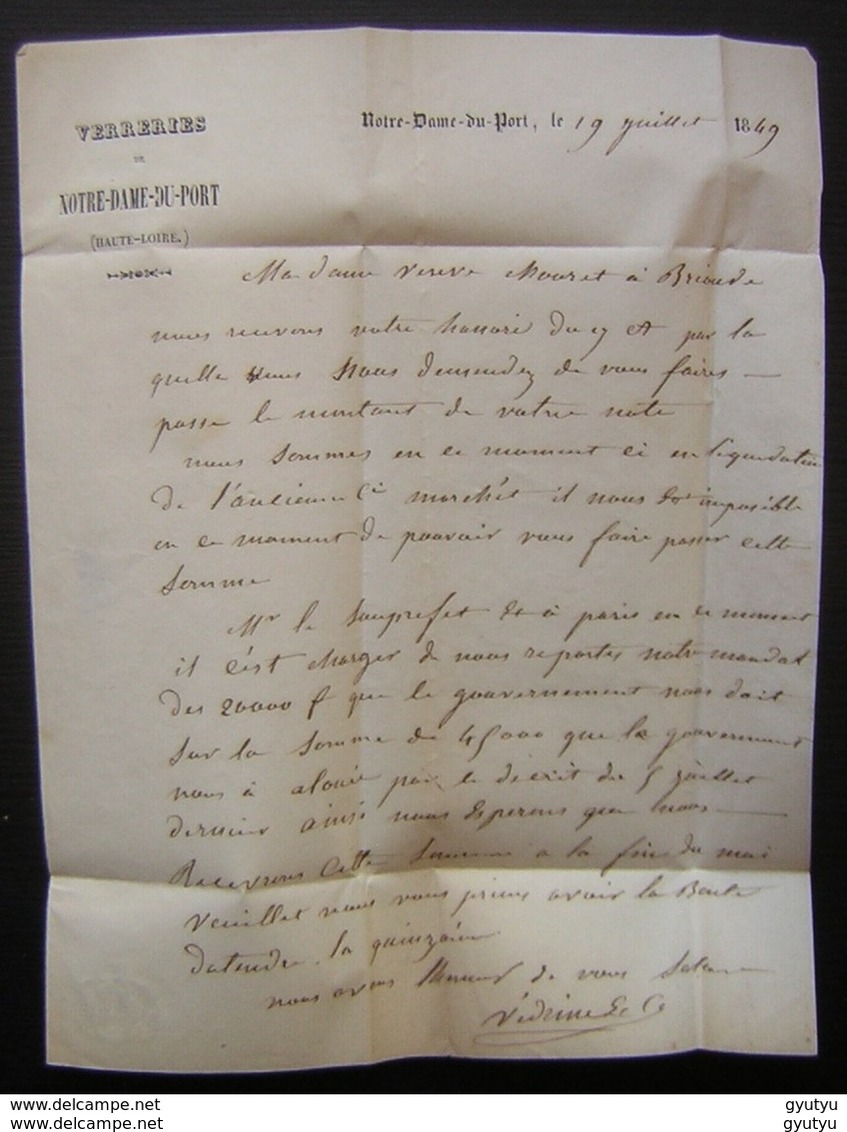 VERRERIES
DE
NOTRE-DAME-DU-PORT
(HAUTE-LOIRE.)
Notre-Dame-du-Port, le 19 juillet 1849
Madame veuve Mouret à Brioude
nous recevons votre honoré du 17 Ct par la
quelle vous nous demendez de vous faires
passe le montant de votre note
nous sommes en ce moment ci en liquidation
de l'ancienne Cie il nous est imposible
en ce moment de pouvoir vous faire passer cette
somme
Mr le souprefet est à paris en ce moment
il c'est charger de nous reportes notre mandat
des 20000 f que le gouvernement nous doit
sur la somme de 45000 que le gouvernement
nous à alouée par le décrit du 5 juillet
dernier ainsi nous esperons que nous
Recevrons cette somme a la fin du moi
veuillet nous vous prions avoir la Bonté
datendre la quinzaine
nous avons l'honneur de vous saluer
Védrine & Ce
www.delcampe.net
gyutyu
www.delcampe.net
gyutyu